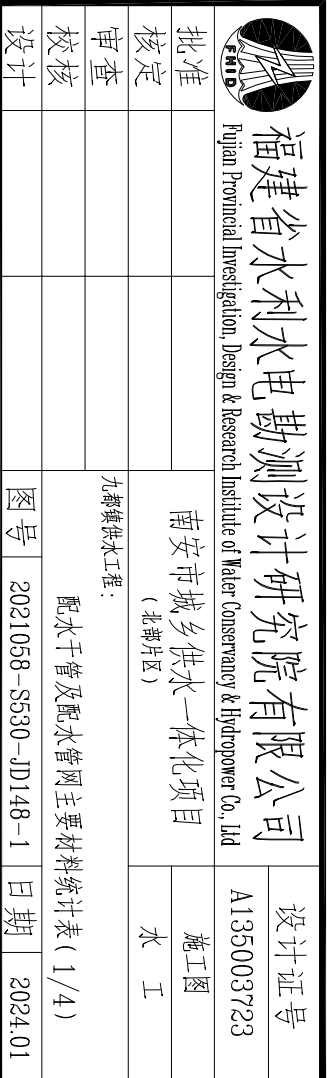 FHID
福建省水利水电勘测设计研究院有限公司
Fujian Provincial Investigation, Design & Research Institute of Water Conservancy & Hydropower Co., Ltd
设计证号
A135003723
批准
核定
审查
校核
设计
南安市城乡供水一体化项目
(北部片区)
施工图
水 工
九都镇供水工程:
配水干管及配水管网主要材料统计表(1/4)
图号
2021058-S530-JD148-1
日期
2024.01